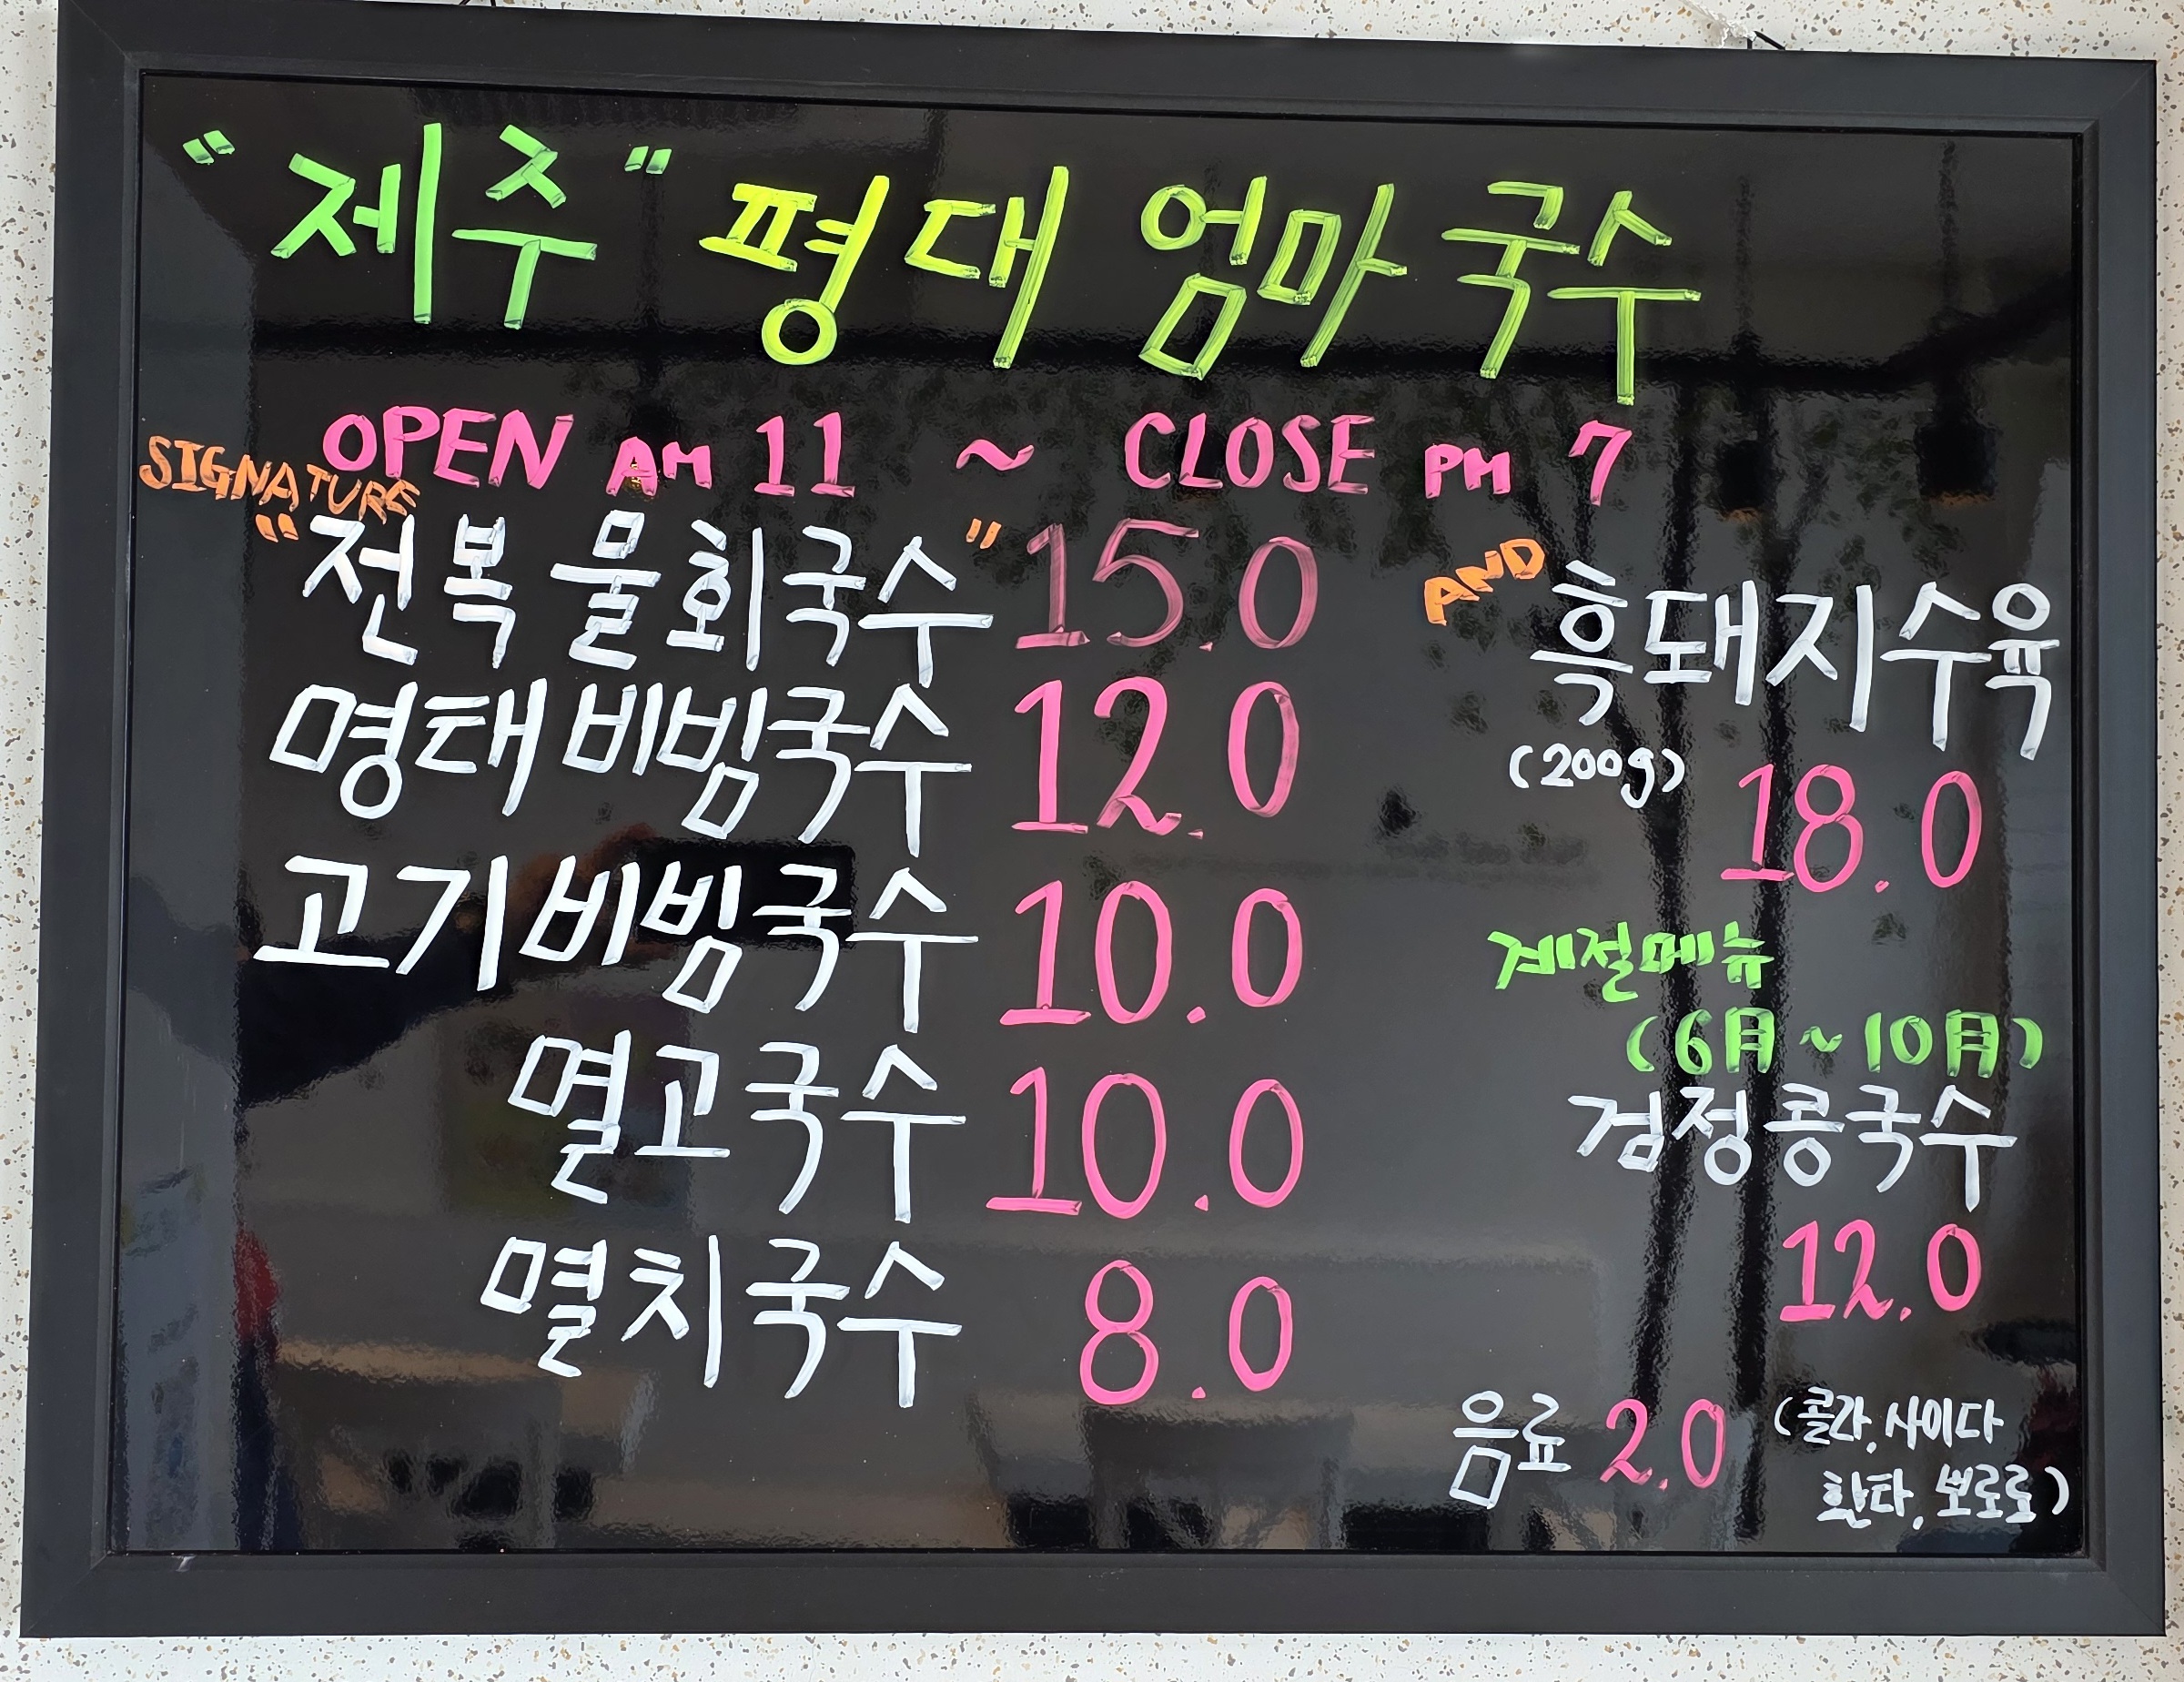 "제주" 평대 엄마국수
OPEN AM 11 ~ CLOSE PM 7
SIGNATURE
"전복물회국수" 15.0
명태비빔국수 12.0
고기비빔국수 10.0
멸고국수 10.0
멸치국수 8.0
AND 흑돼지수육
(200g) 18.0
계절메뉴
(6月~10月)
검정콩국수
12.0
음료 2.0 (콜라, 사이다
환타, 뽀로로)